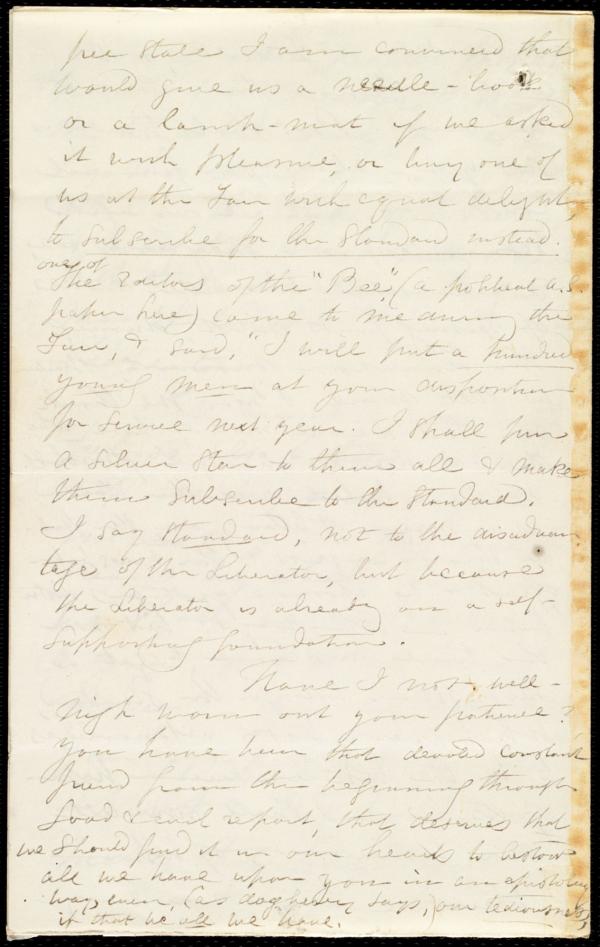 free state I am convinced that
would give us a needle-book
or a lamp-mat if we asked
it with pleasure, or buy one of
us at the Fair with equal delight,
to subscribe for the Standard instead.
one of
The Editors of the "Bee" (a political a.s.
paper here) came to me during the
Fair, & said, "I will put a hundred
young men at your disposition
for service next year. I shall pin
a silver star to them all & make
them subscribe to the Standard.
I say Standard, not to the disadvan
tage of the Liberator, but because
the Liberator is already on a self-
supporting foundation.
Have I not well-
nigh worn out your patience?
You have been that devoted constant
friend from the beginning through
Good & evil report, that deserves that
we should find it in our hearts to bestow
all we have upon you in an epistolary
way, even, (as dogberry says,) our tediousness,
if that be all we have.